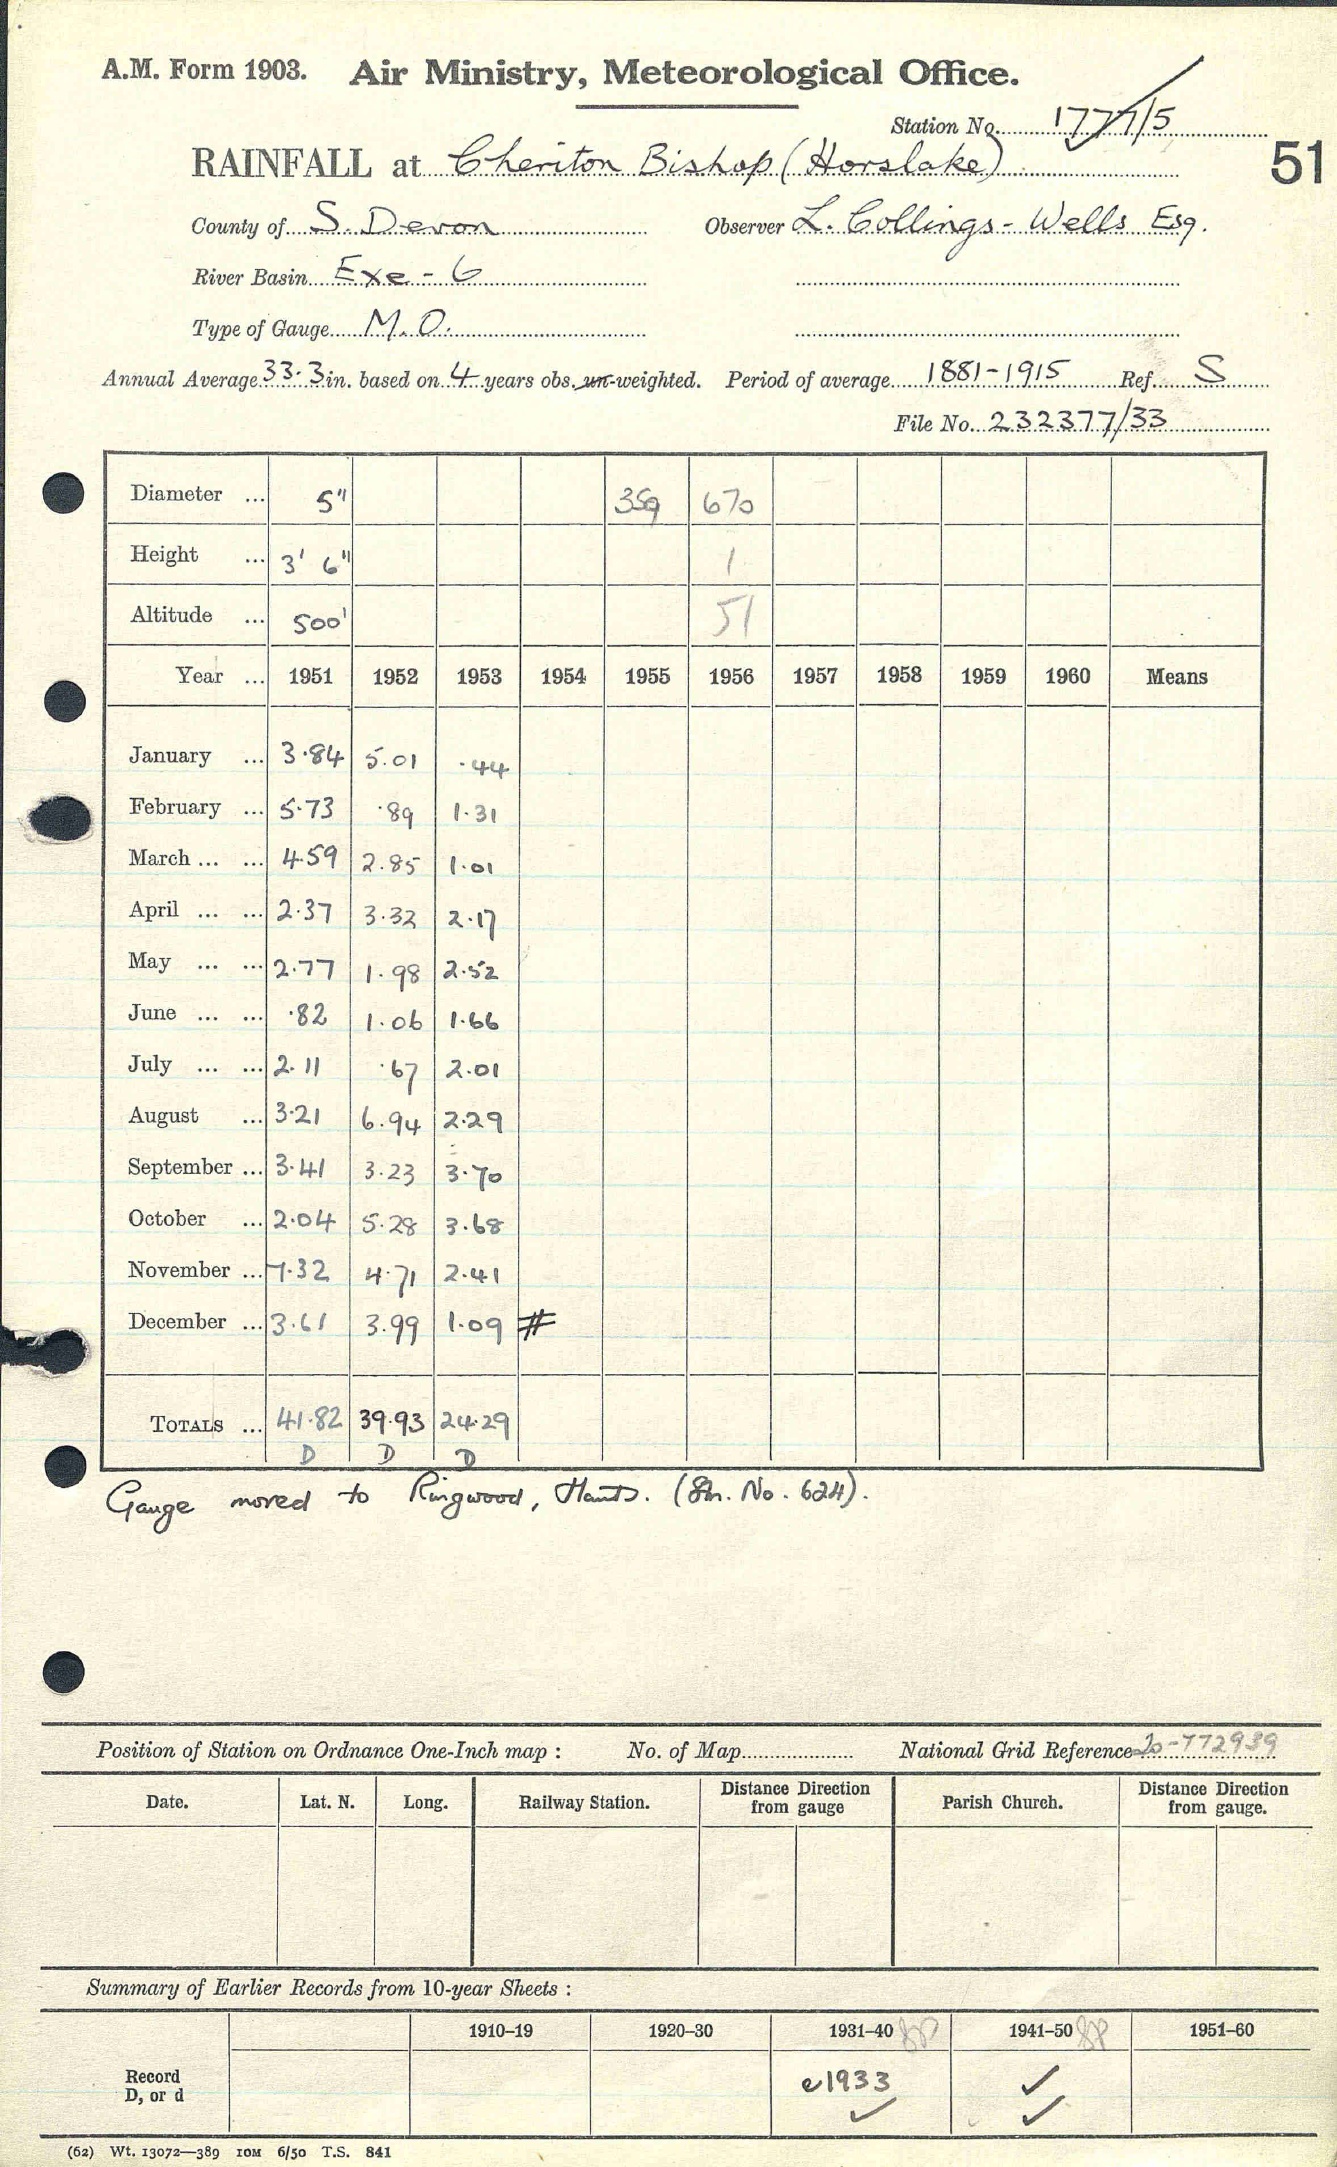 A.M. Form 1903. Air Ministry, Meteorological Office.
Station No. 1777/5
RAINFALL at Cheriton Bishop (Horslake)
51
County of S. Devon Observer L. Collings-Wells Esq.
River Basin Exe - 6
Type of Gauge M.O.
Annual Average 33.3 in. based on 4 years obs. un-weighted. Period of average 1881-1915 Ref. S
File No. 232377/33
Diameter ... 5" 359 670
Height ... 3' 6" 1
Altitude ... 500' 51
Year ... 1951 1952 1953 1954 1955 1956 1957 1958 1959 1960 Means
January ... 3.84 5.01 .44
February ... 5.73 .89 1.31
March ... ... 4.59 2.85 1.01
April ... ... 2.37 3.32 2.17
May ... ... 2.77 1.98 2.52
June ... ... .82 1.06 1.66
July ... ... 2.11 .67 2.01
August ... 3.21 6.94 2.29
September ... 3.41 3.23 3.70
October ... 2.04 5.28 3.68
November ... 7.32 4.71 2.41
December ... 3.61 3.99 1.09 #
TOTALS ... 41.82 39.93 24.29
D D D
Gauge moved to Ringwood, Hants. (Stn. No. 624).
Position of Station on Ordnance One-Inch map : No. of Map National Grid Reference 20-772939
Date. Lat. N. Long. Railway Station. Distance Direction from gauge Parish Church. Distance Direction from gauge.
Summary of Earlier Records from 10-year Sheets :
1910–19 1920–30 1931–40 1941–50 1951–60
Record
D, or d
e1933 ✓
✓ ✓
(62) Wt. 13072—389 10M 6/50 T.S. 841